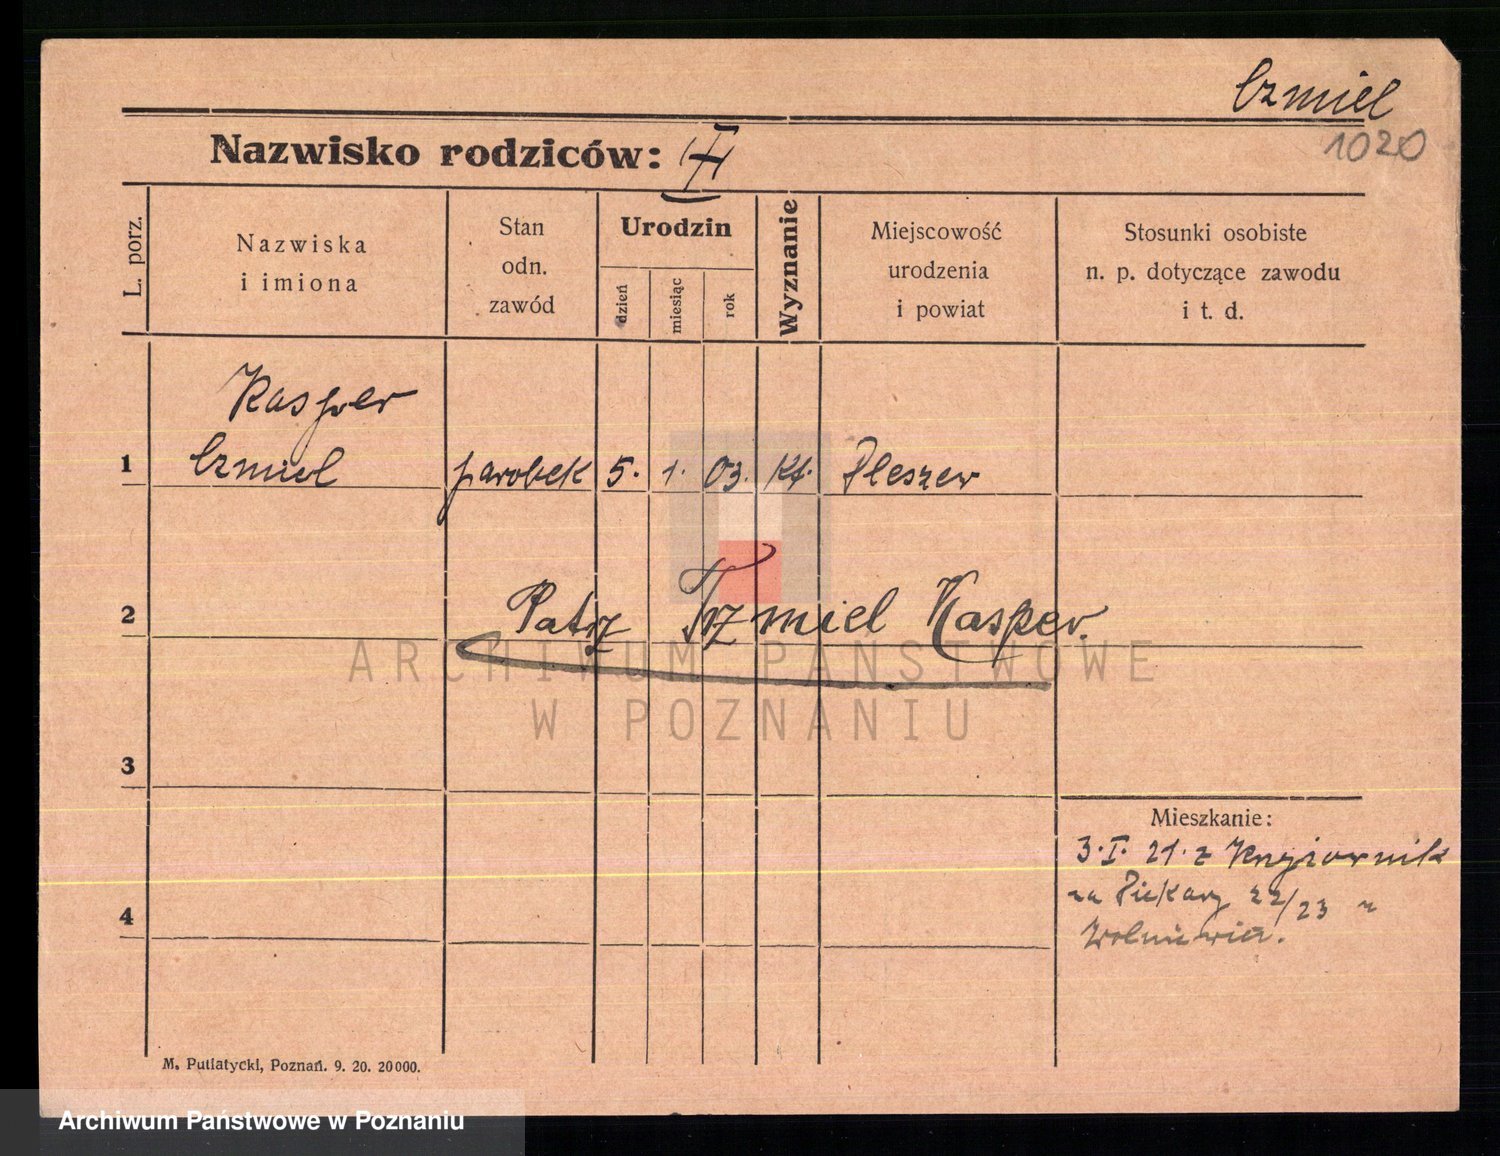 Czmiel
1020
Nazwisko rodziców:
L. porz.
Nazwiska
i imiona
Stan
odn.
zawód
Urodzin
dzień
miesiąc
rok
Wyznanie
Miejscowość
urodzenia
i powiat
Stosunki osobiste
n. p. dotyczące zawodu
i t. d.
Kasper
1 Czmiel parobek 5. 1. 03. kt. Pleszew
2 Patrz Trzmiel Kasper.
3
Mieszkanie:
3. I. 21. z
na Piekary 22/23
4
M. Putiatycki, Poznań. 9. 20. 20000.
ARCHIWUM PAŃSTWOWE
W POZNANIU
Archiwum Państwowe w Poznaniu